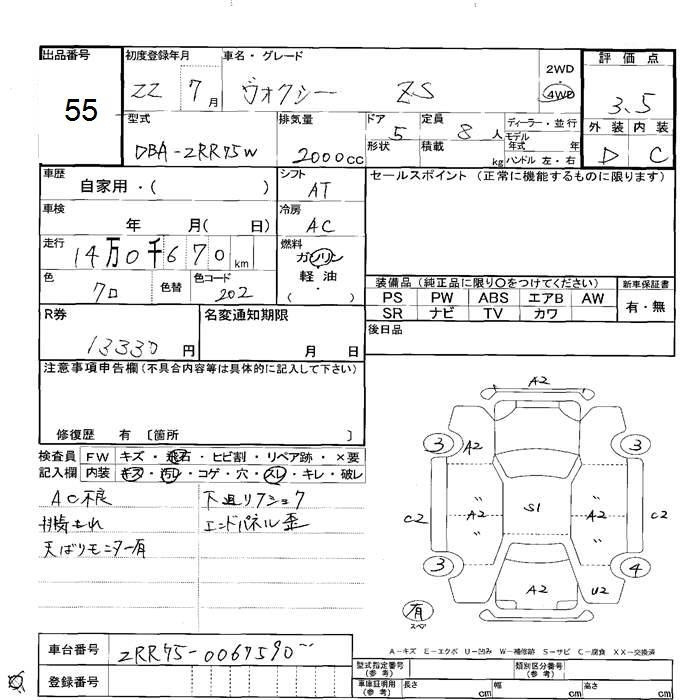 出品番号 初度登録年月 車名・グレード 2WD 評価点
55 22 7月 ヴォクシー ZS 4WD 3.5
型式 排気量 ドア 5 定員 8人 ディーラー・並行 外装 内装
DBA-ZRR75W 2000cc 形状 積載 kg モデル年式 年 ハンドル 左・右 D C
車歴 自家用・( ) シフト AT セールスポイント (正常に機能するものに限ります)
車検 年 月( 日) 冷房 AC
走行 14万0千670km 燃料 ガソリン
色 クロ 色替 色コード 202 軽油 ・ ( )
装備品 (純正品に限り○をつけてください) 新車保証書
PS PW ABS エアB AW 有・無
SR ナビ TV カワ
R券 13330円 名変通知期限 月 日 後日品
注意事項申告欄 (不具合内容等は具体的に記入して下さい)
修復歴 有 〔箇所 〕
検査員 FW キズ・飛石・ヒビ割・リペア跡・×要
記入欄 内装 キズ・汚レ・コゲ・穴・スレ・キレ・破レ
AC不良 下廻りアショク
エンドパネル歪
天ばりモニター有
A2
3 A2 3
C2 〃 A2 〃 S1 〃 A2 〃 C2
3 A2 U2 4
有
スペア
A-キズ E-エクボ U-凹み W-補修跡 S-サビ C-腐食 XX-交換済
車台番号 ZRR75-0067590
登録番号
型式指定番号 (参考) 類別区分番号 (参考)
車庫証明用 (参考) 長さ cm 幅 cm 高さ cm